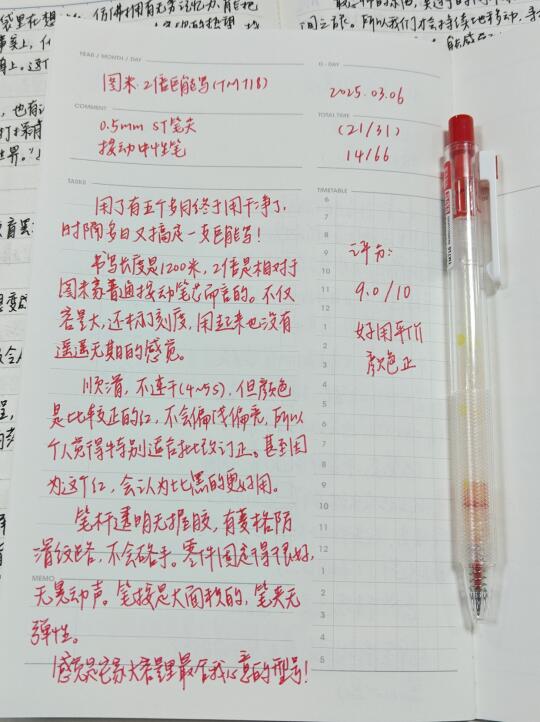 YEAR / MONTH / DAY
D-DAY
图来·2倍巨能写(TM T18)
2025.03.06
COMMENT
TOTAL TIME
0.5mm ST笔尖
(21/31)
按动中性笔
14/66
TASKS
TIMETABLE
用了有五个多月终于用干净了,
时隔多日又搞定一支巨能写!
书写长度是1200米,2倍是相对于
图来家普通按动笔芯而言的。不仅
容量大,还标了刻度,用起来也没有
遥遥无期的感觉。
顺滑,不速干(4~5S),但颜色
是比较正的红,不会偏浅偏亮,所以
个人觉得特别适合批改订正。甚至因
为这个红,会认为比黑的更好用。
笔杆透明无握胶,有菱格防
滑纹路,不会硌手。零件固定得很好,
无晃动声。笔按是大面积的,笔夹无
弹性。
感觉是它家大容量里最合我心意的型号!
MEMO
评分:
9.0/10
好用平价
颜色正
6
7
8
9
10
11
12
1
2
3
4
5
6
7
8
9
10
11
12
1
2
3
4
5